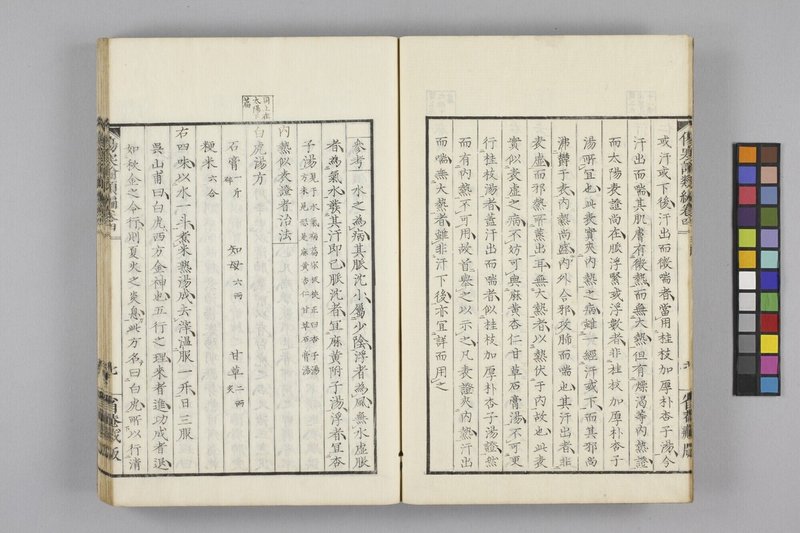 或汗或下後汗出而微喘者當用桂枝加厚朴杏子湯今
汗出而喘其肌膚有微熱而無大熱但有煩渴等内熱證
而太陽表證尚在脈浮緊或浮數者非桂枝加厚朴杏子
湯所宜也此表實夾内熱之病雖經汗或下而其邪尚
沸鬱于表内熱尚盛内外合邪攻肺而喘也其汗出者非
表虛而邪熱所薰出耳無大熱者以熱伏于内故也此表
實似表虛之病不妨可與麻黃杏仁甘草石膏湯不可更
行桂枝湯者蓋汗出而喘者似桂枝加厚朴杏子湯證然
而有内熱不可用故首擧之以示之凡表證夾内熱汗出
而喘無大熱者雖非汗下後亦宜詳而用之
參考 一水之為病其脈沈小屬少陰浮者為風無水虛脹
者為氣水發其汗即已脈沈者宜麻黃附子湯浮者宜杏
子湯
内熱似表證者治法
白虎湯方
石膏一斤碎 知母六兩 甘草二兩炙
粳米六合
右四味以水一斗煮米熟湯成去滓溫服一升日三服
吳山甫曰白虎西方金神也五行之理來者進功成者退
如秋金之令行則夏火之炎息此方名曰白虎所以行清
傷寒論類編卷四
七
省菴藏版